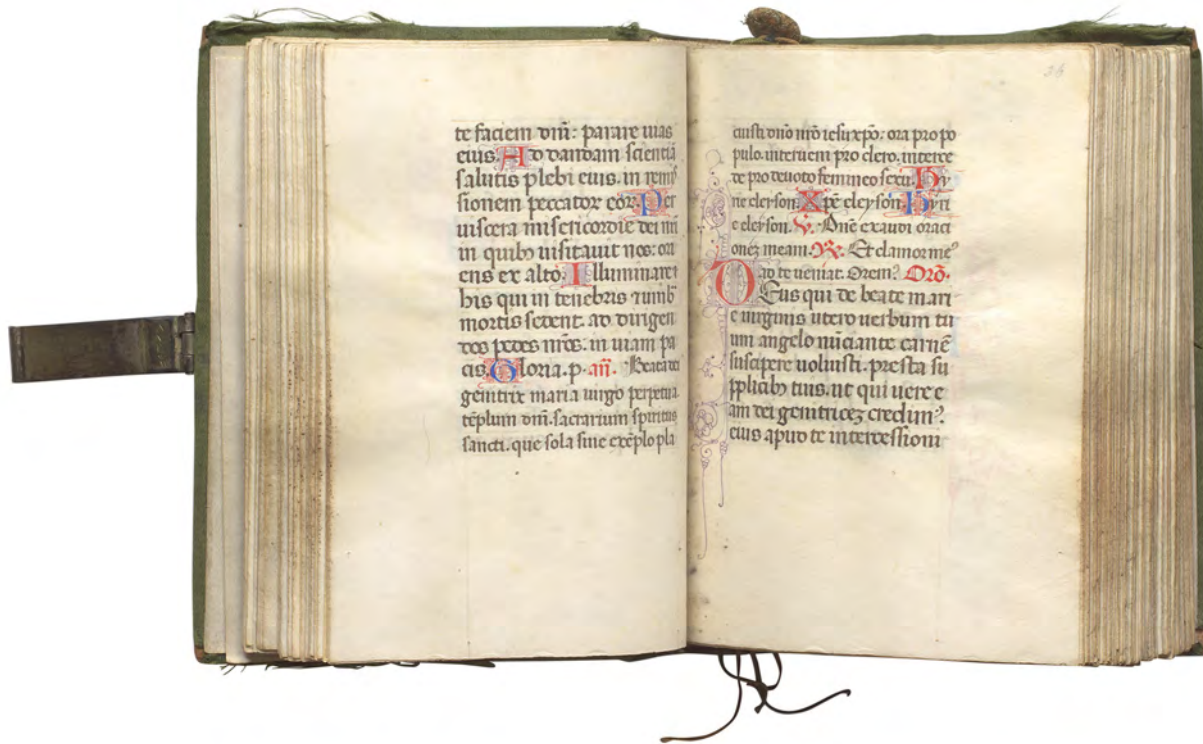 te faciem dm̄: parare uias
eius. Ad dandam scientiā
salutis plebi eius. in remis
sionem peccator eor̄. Per
uiscera misericordie dei nr̄i
in quibꝫ uisitauit nos: ori
ens ex alto. Illuminare
his qui in tenebris ⁊ in umbᵃ
mortis sedent. ad dirigen
dos pedes nr̄os. in uiam pa
cis. Gloria. p. an̄. Beata dei
genitrix maria uirgo perpetua.
tēplum dm̄. sacrarium spiritus
sancti. que sola sine exēplo pla
26
cuisti dn̄o nr̄o iesu xp̄o: ora pro po
pulo. interueni pro clero. interce
de pro deuoto femineo sexu. Ky
rie eleyson. Xp̄e eleyson. Kyri
e eleyson. V. Dn̄e exaudi orati
oneꝫ meam. R. Et clamor meꝰ
ad te ueniat. Oremꝰ. Orō.
Deus qui de beate mari
e uirginis utero uerbum tu
um angelo nūciante carnē
suscipere uoluisti. presta su
pplicibꝫ tuis. ut qui uere e
am dei genitriceꝫ credimꝰ.
eius apud te intercessioni